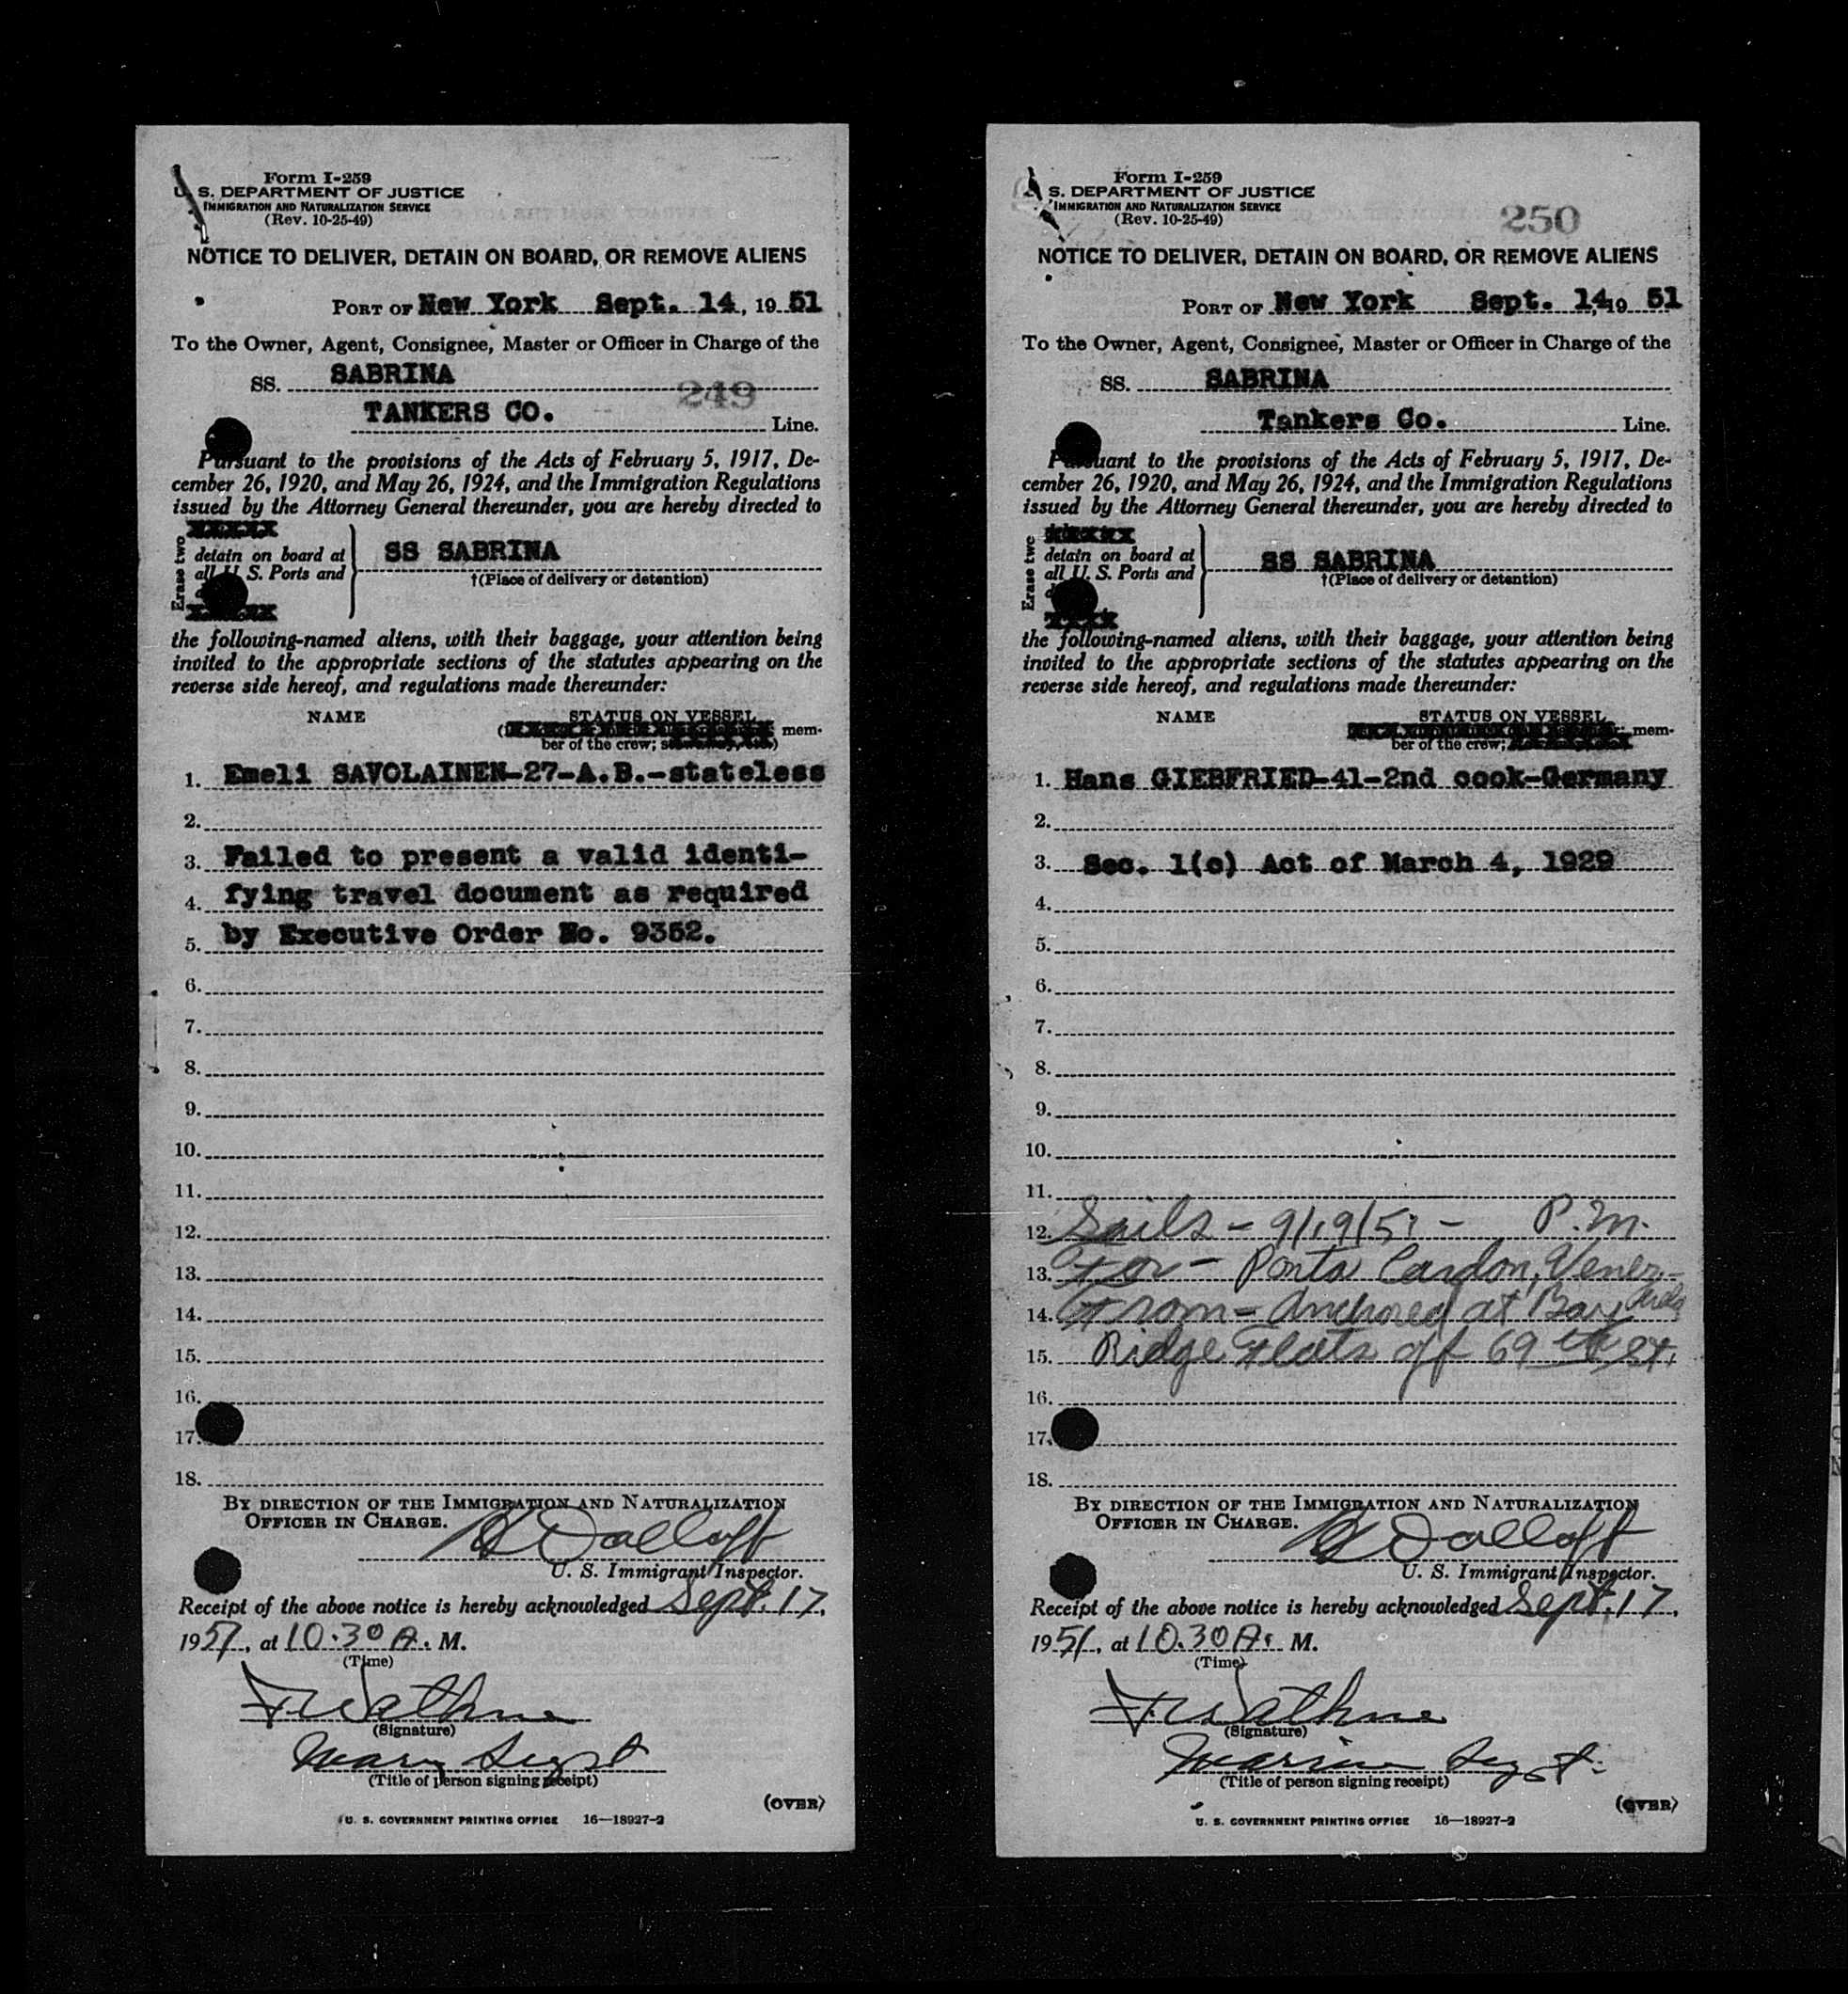 Form I-259
U. S. DEPARTMENT OF JUSTICE
IMMIGRATION AND NATURALIZATION SERVICE
(Rev. 10-25-49)
NOTICE TO DELIVER, DETAIN ON BOARD, OR REMOVE ALIENS
PORT OF New York Sept. 14, 19 51
To the Owner, Agent, Consignee, Master or Officer in Charge of the
SS. SABRINA
249
TANKERS CO. Line.
Pursuant to the provisions of the Acts of February 5, 1917, De-
cember 26, 1920, and May 26, 1924, and the Immigration Regulations
issued by the Attorney General thereunder, you are hereby directed to
Erase two
detain on board at
all U. S. Ports and
SS SABRINA
†(Place of delivery or detention)
the following-named aliens, with their baggage, your attention being
invited to the appropriate sections of the statutes appearing on the
reverse side hereof, and regulations made thereunder:
NAME STATUS ON VESSEL
mem-
ber of the crew;
1. Emeli SAVOLAINEN-27-A.B.-stateless
2.
3. Failed to present a valid identi-
4. fying travel document as required
5. by Executive Order No. 9352.
6.
7.
8.
9.
10.
11.
12.
13.
14.
15.
16.
17.
18.
BY DIRECTION OF THE IMMIGRATION AND NATURALIZATION
OFFICER IN CHARGE.
U. S. Immigrant Inspector.
Receipt of the above notice is hereby acknowledged Sept. 17,
1951, at 10.30 A. M.
(Time)
(Signature)
(Title of person signing receipt)
(OVER)
U. S. GOVERNMENT PRINTING OFFICE 16—18927-2
Form I-259
S. DEPARTMENT OF JUSTICE
IMMIGRATION AND NATURALIZATION SERVICE
(Rev. 10-25-49)
250
NOTICE TO DELIVER, DETAIN ON BOARD, OR REMOVE ALIENS
PORT OF New York Sept. 14, 19 51
To the Owner, Agent, Consignee, Master or Officer in Charge of the
SS. SABRINA
Tankers Co. Line.
Pursuant to the provisions of the Acts of February 5, 1917, De-
cember 26, 1920, and May 26, 1924, and the Immigration Regulations
issued by the Attorney General thereunder, you are hereby directed to
Erase two
detain on board at
all U. S. Ports and
SS SABRINA
†(Place of delivery or detention)
the following-named aliens, with their baggage, your attention being
invited to the appropriate sections of the statutes appearing on the
reverse side hereof, and regulations made thereunder:
NAME STATUS ON VESSEL
mem-
ber of the crew;
1. Hans GIEBFRIED-41-2nd cook-Germany
2.
3. Sec. 1(c) Act of March 4, 1929
4.
5.
6.
7.
8.
9.
10.
11.
12. Sails - 9/19/51 - P.M.
13. For - Ponta Cardon, Venez-
14. From - Anchored at Bay
15. Ridge Flats off 69th St.
16.
17.
18.
BY DIRECTION OF THE IMMIGRATION AND NATURALIZATION
OFFICER IN CHARGE.
U. S. Immigrant Inspector.
Receipt of the above notice is hereby acknowledged Sept. 17,
1951, at 10.30 A. M.
(Time)
(Signature)
Marine Supt.
(Title of person signing receipt)
(OVER)
U. S. GOVERNMENT PRINTING OFFICE 16—18927-2